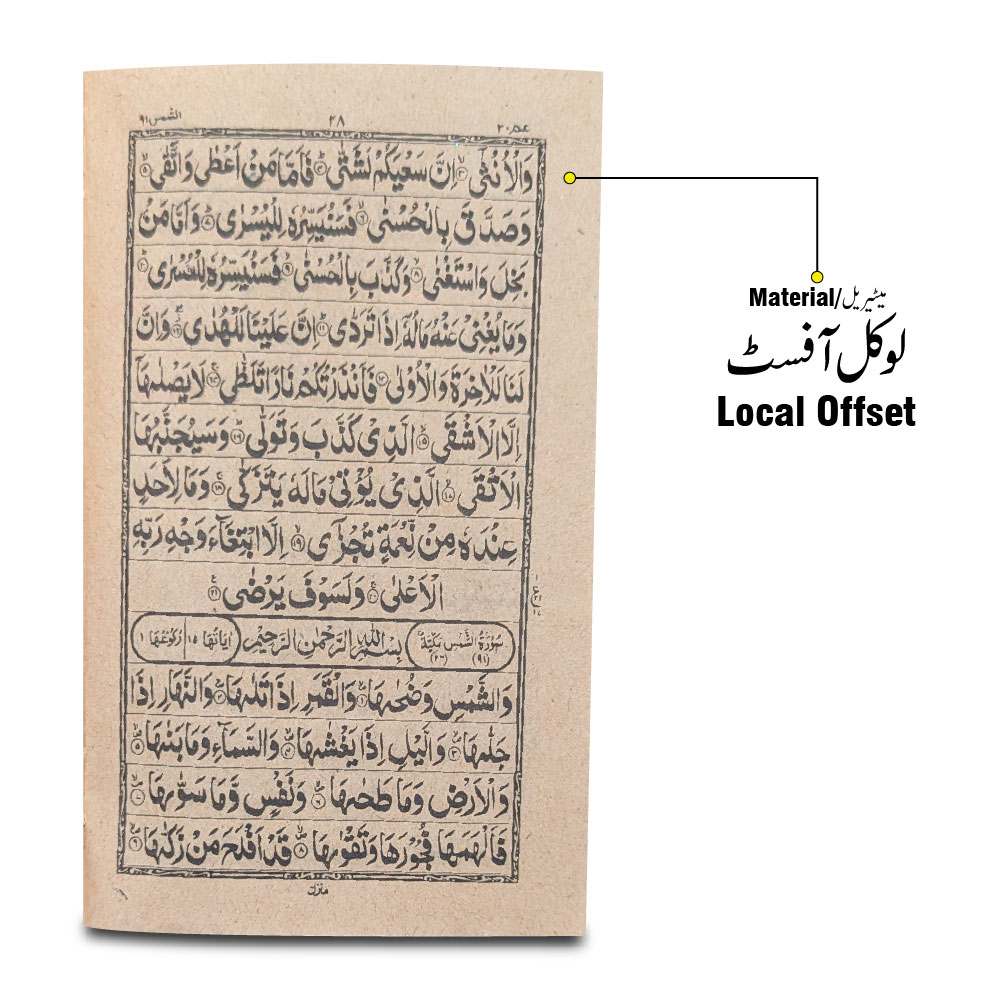 عم ٣٠ ٢٨ الشمس ٩١
وَالْاُنْثٰۤى ۙ﴿۳﴾ اِنَّ سَعْيَكُمْ لَشَتّٰى ؕ﴿۴﴾ فَاَمَّا مَنْ اَعْطٰى وَاتَّقٰى ۙ﴿۵﴾
وَصَدَّقَ بِالْحُسْنٰى ۙ﴿۶﴾ فَسَنُيَسِّرُهٗ لِلْيُسْرٰى ؕ﴿۷﴾ وَاَمَّا مَنْۢ
بَخِلَ وَاسْتَغْنٰى ۙ﴿۸﴾ وَكَذَّبَ بِالْحُسْنٰى ۙ﴿۹﴾ فَسَنُيَسِّرُهٗ لِلْعُسْرٰى ؕ﴿۱۰﴾
وَمَا يُغْنِىْ عَنْهُ مَالُهٗۤ اِذَا تَرَدّٰى ؕ﴿۱۱﴾ اِنَّ عَلَيْنَا لَلْهُدٰى ۖ﴿۱۲﴾ وَاِنَّ
لَنَا لَلْاٰخِرَةَ وَالْاُوْلٰى ﴿۱۳﴾ فَاَنْذَرْتُكُمْ نَارًا تَلَظّٰى ۚ﴿۱۴﴾ لَا يَصْلٰىهَاۤ
اِلَّا الْاَشْقَى ۙ﴿۱۵﴾ الَّذِىْ كَذَّبَ وَتَوَلّٰى ؕ﴿۱۶﴾ وَسَيُجَنَّبُهَا
الْاَتْقَى ۙ﴿۱۷﴾ الَّذِىْ يُؤْتِىْ مَالَهٗ يَتَزَكّٰى ۚ﴿۱۸﴾ وَمَا لِاَحَدٍ
عِنْدَهٗ مِنْ نِّعْمَةٍ تُجْزٰٓى ۙ﴿۱۹﴾ اِلَّا ابْتِغَآءَ وَجْهِ رَبِّهِ
الْاَعْلٰى ۚ﴿۲۰﴾ وَلَسَوْفَ يَرْضٰى ﴿۲۱﴾
سُوْرَةُ الشَّمْسِ مَكِّيَّةٌ (٩١) (٢٦) بِسْمِ اللّٰهِ الرَّحْمٰنِ الرَّحِيْمِ اٰيَاتُهَا ١٥ رُكُوْعُهَا ١
وَالشَّمْسِ وَضُحٰىهَا ۙ﴿۱﴾ وَالْقَمَرِ اِذَا تَلٰىهَا ۙ﴿۲﴾ وَالنَّهَارِ اِذَا
جَلّٰىهَا ۙ﴿۳﴾ وَالَّيْلِ اِذَا يَغْشٰىهَا ۙ﴿۴﴾ وَالسَّمَآءِ وَمَا بَنٰىهَا ۙ﴿۵﴾
وَالْاَرْضِ وَمَا طَحٰىهَا ۙ﴿۶﴾ وَنَفْسٍ وَّمَا سَوّٰىهَا ۙ﴿۷﴾
فَاَلْهَمَهَا فُجُوْرَهَا وَتَقْوٰىهَا ۙ﴿۸﴾ قَدْ اَفْلَحَ مَنْ زَكّٰىهَا ۙ﴿۹﴾
منزل
Material/میٹیریل
لوکل آفسٹ
Local Offset